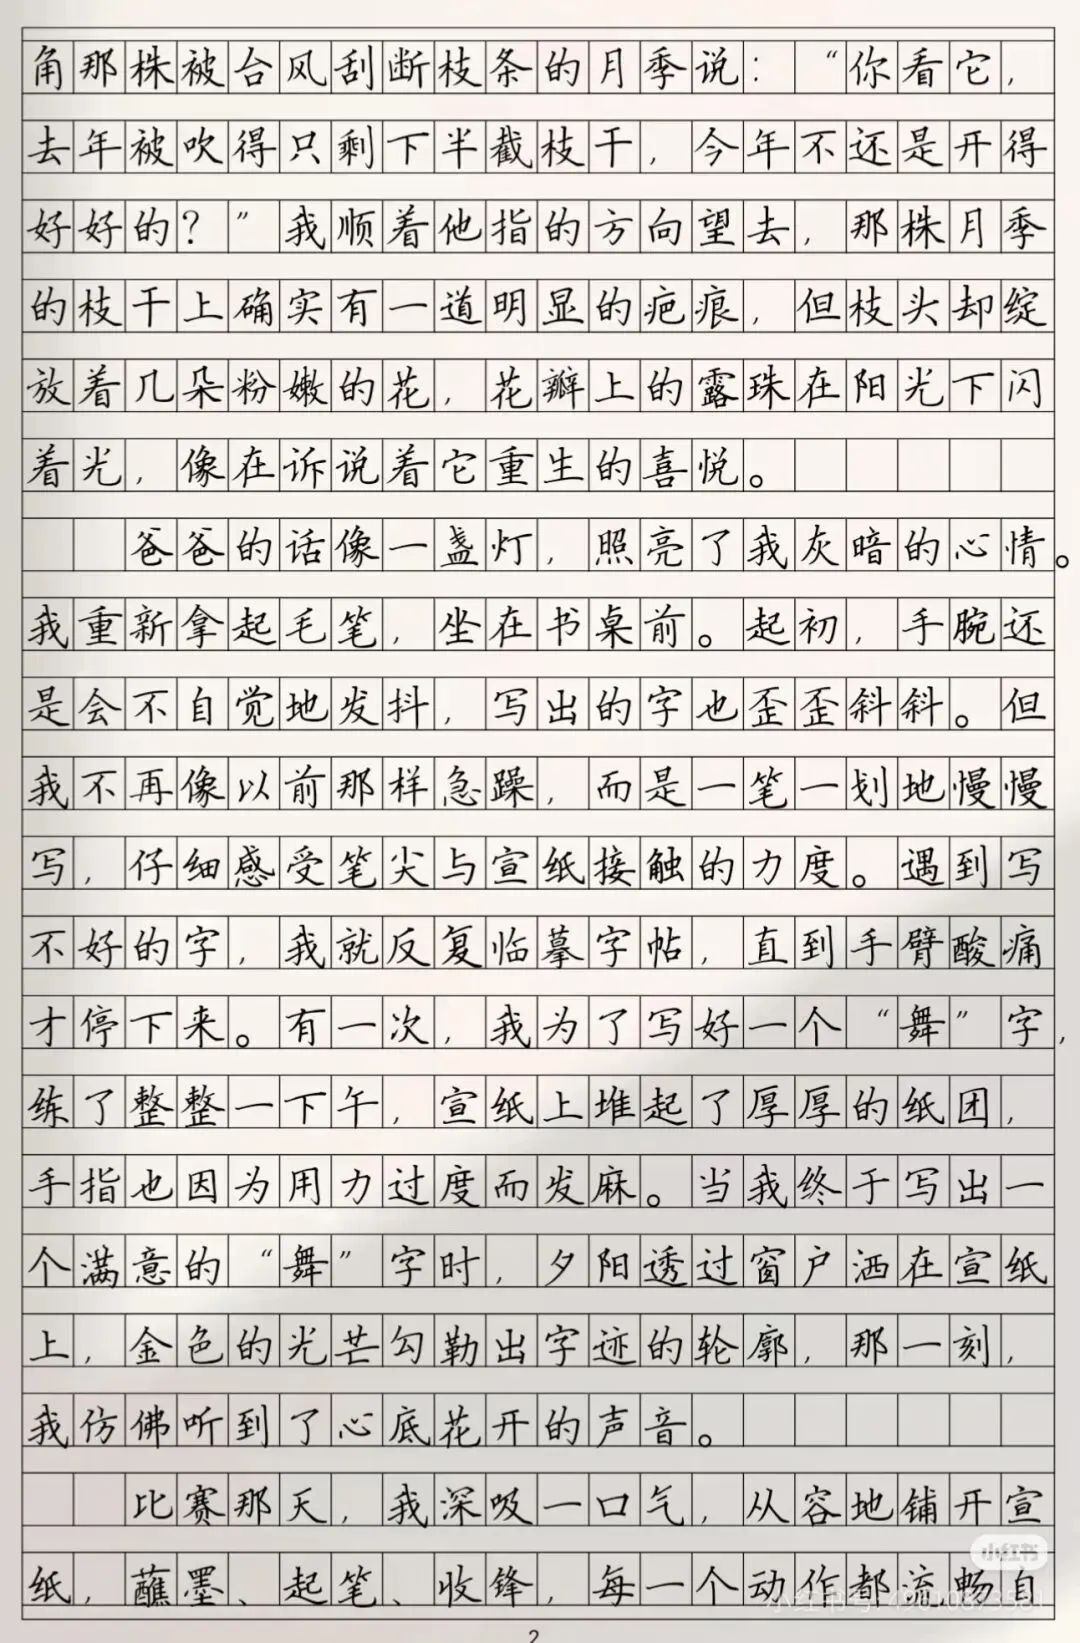 角那株被台风刮断枝条的月季说：“你看它，
去年被吹得只剩下半截枝干，今年不还是开得
好好的？”我顺着他指的方向望去，那株月季
的枝干上确实有一道明显的疤痕，但枝头却绽
放着几朵粉嫩的花，花瓣上的露珠在阳光下闪
着光，像在诉说着它重生的喜悦。
爸爸的话像一盏灯，照亮了我灰暗的心情。
我重新拿起毛笔，坐在书桌前。起初，手腕还
是会不自觉地发抖，写出的字也歪歪斜斜。但
我不再像以前那样急躁，而是一笔一划地慢慢
写，仔细感受笔尖与宣纸接触的力度。遇到写
不好的字，我就反复临摹字帖，直到手臂酸痛
才停下来。有一次，我为了写好一个“舞”字，
练了整整一下午，宣纸上堆起了厚厚的纸团，
手指也因为用力过度而发麻。当我终于写出一
个满意的“舞”字时，夕阳透过窗户洒在宣纸
上，金色的光芒勾勒出字迹的轮廓，那一刻，
我仿佛听到了心底花开的声音。
比赛那天，我深吸一口气，从容地铺开宣
小红书
纸，蘸墨、起笔、收锋，每一个动作都流畅自
小红书号：
2